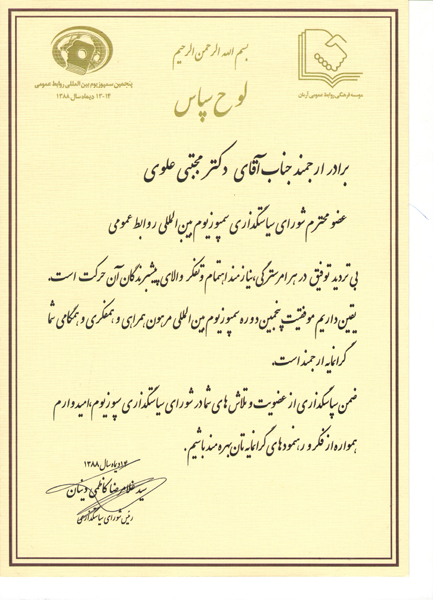 بسم الله الرحمن الرحیم
موسسه فرهنگی روابط عمومی آرمان
پنجمین سمپوزیوم بین المللی روابط عمومی
۱۴-۱۳ دیماه سال ۱۳۸۸
لوح سپاس
برادر ارجمند جناب آقای دکتر مجتبی علوی
عضو محترم شورای سیاستگذاری سمپوزیوم بین المللی روابط عمومی
بی تردید توفیق در هر امر سترگی، نیازمند اهتمام و تفکر والای پیشبرندگان آن حرکت است.
یقین داریم موفقیت پنجمین دوره سمپوزیوم بین المللی مرهون همراهی و همفکری و همگامی شما
گرانمایه ارجمند است.
ضمن سپاسگذاری از عضویت و تلاش های شما در شورای سیاستگذاری سپوزیوم، امیدوارم
همواره از فکر و رهنمودهای گرانمایه تان بهره مند باشیم.
۱۴دیماه سال ۱۳۸۸
سید غلامرضا کاظمی دینان
رئیس شورای سیاستگذاری